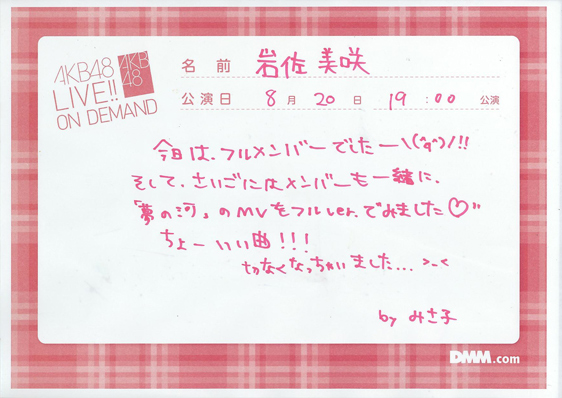 AKB48
LIVE!!
ON DEMAND
AKB
48
名前 岩佐美咲
公演日 8月20日 19:00 公演
今日は、フルメンバーでしたー\(^q^)/!!
そして、さいごにはメンバーも一緒に、
「夢の河」のMVをフルver.でみました♡"
ちょーいい曲!!!
切なくなっちゃいました... >_<
by みさ子
DMM.com